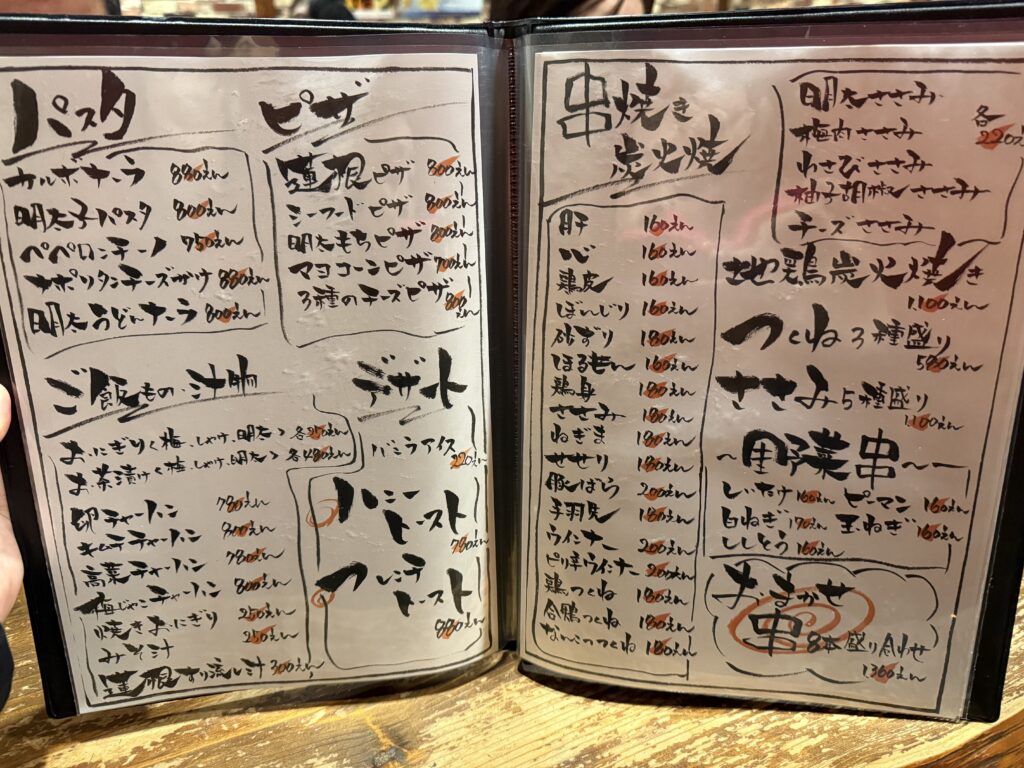 パスタ
カルボナーラ 880えん
明太子パスタ 800えん
ペペロンチーノ 750えん
ナポリタンチーズがけ 880えん
明太うどんナーラ 800えん
ピザ
蓮根ピザ 800えん
シーフードピザ 800えん
明太もちピザ 800えん
マヨコーンピザ 700えん
3種のチーズピザ 800えん
ご飯もの・汁物
おにぎり<梅、しゃけ、明太> 各
お茶漬け<梅、しゃけ、明太> 各480えん
卵チャーハン 780えん
キムチチャーハン 800えん
高菜チャーハン 780えん
梅じゃこチャーハン 800えん
焼きおにぎり 250えん
みそ汁 250えん
蓮根すり流し汁 300えん
デザート
バニラアイス 220えん
ハニートースト 780えん
フレンチトースト 880えん
串焼き
炭火焼
肝 160えん
心 160えん
鶏皮 160えん
ぼんじり 160えん
砂ずり 180えん
ほるもん 160えん
鶏身 180えん
ささみ 180えん
ねぎま 180えん
せせり 180えん
豚ばら 200えん
手羽先 180えん
ウインナー 200えん
ピリ辛ウインナー 200えん
鶏つくね 180えん
合鴨つくね 180えん
なんこつつくね 180えん
明太ささみ
梅肉ささみ
わさびささみ
柚子胡椒ささみ
チーズささみ
各220えん
地鶏炭火焼き
1,100えん
つくね3種盛り
580えん
ささみ5種盛り
1,100えん
〜野菜串〜
しいたけ 160えん ピーマン 160えん
白ねぎ 170えん 玉ねぎ 160えん
ししとう 160えん
おまかせ
串8本盛り合わせ
1300えん